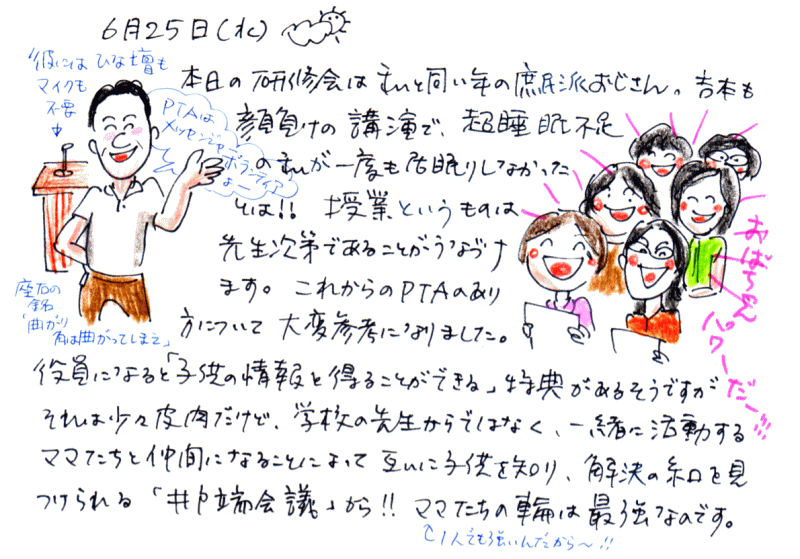 6月25日(水)
彼には ひな壇も
マイクも
不要
PTAは
メッセンジャー
ボランティア
よー
本日の研修会は私と同い年の庶民派おじさん。吉本も
顔負けの講演で、超睡眠不足
の私が一度も居眠りしなかった
とは!! 授業というものは
先生次第であることがうなづけ
ます。これからのPTAのあり
方について大変参考になりました。
座右の
銘
「曲がり
角は曲がってしまえ」
おばちゃん
パワーだー!!!
役員になると「子供の情報を得ることができる」特典があるそうですが
それは少々皮肉だけど、学校の先生からではなく、一緒に活動する
ママたちと仲間になることによって互いに子供を知り、解決の糸口を見
つけられる「井戸端会議」から!! ママたちの輪は最強なのです。
1人でも強いんだから〜!!